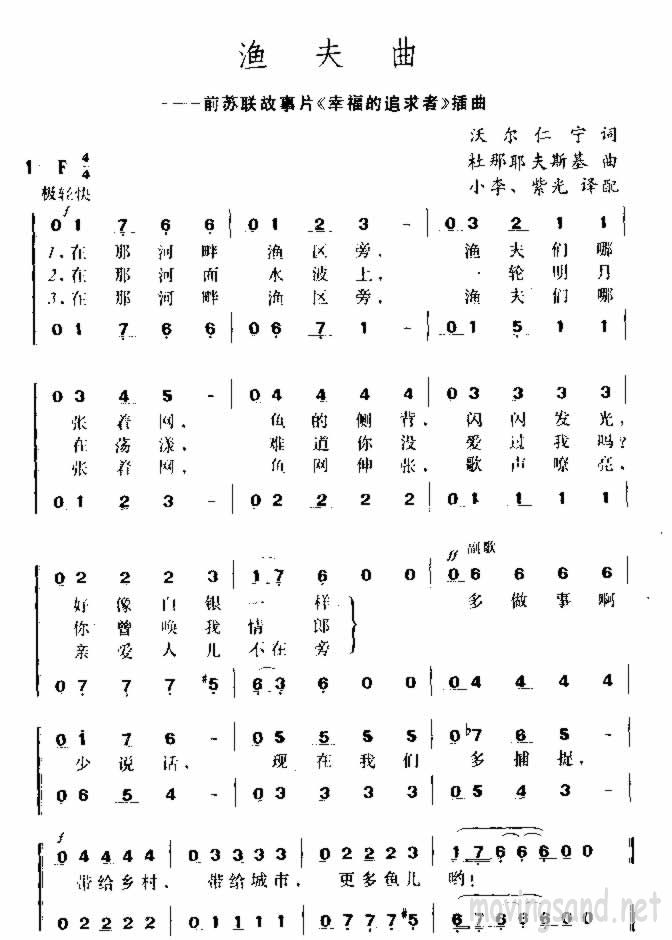 渔夫曲
——前苏联故事片《幸福的追求者》插曲
沃尔仁宁 词
1=F 4/4 杜那耶夫斯基 曲
极轻快 小李、紫光 译配
f
0 1 7 6 6 | 0 1 2 3 - | 0 3 2 1 1 |
1.在那河畔 渔区旁, 渔夫们哪
2.在那河面 水波上, 一轮明月
3.在那河畔 渔区旁, 渔夫们哪
0 1 7 6 6 | 0 6 7 1 - | 0 1 5 1 1 |
0 3 4 5 - | 0 4 4 4 4 | 0 3 3 3 3 |
张着网, 鱼的侧背, 闪闪发光,
在荡漾, 难道你没 爱过我吗?
张着网, 鱼网伸张, 歌声嘹亮,
0 1 2 3 - | 0 2 2 2 2 | 0 1 1 1 1 |
ff 副歌
0 2 2 2 3 | 1 7 6 0 0 | 0 6 6 6 6 |
好像白银一样 多做事啊
你曾唤我情郎
亲爱人儿不在旁
0 7 7 7 #5 | 6 3 6 0 0 | 0 4 4 4 4 |
0 i 7 6 - | 0 5 5 5 5 | 0 b7 6 5 - |
少说话, 现在我们 多捕捉,
0 6 5 4 - | 0 3 3 3 3 | 0 5 4 3 - |
f
0 4 4 4 4 | 0 3 3 3 3 | 0 2 2 2 3 | 1 7 6 6 6 0 0 |
带给乡村、 带给城市, 更多鱼儿 哟!
0 2 2 2 2 | 0 1 1 1 1 | 0 7 7 7 #5 | 6 7 6 6 6 0 0 |
movingsand.net